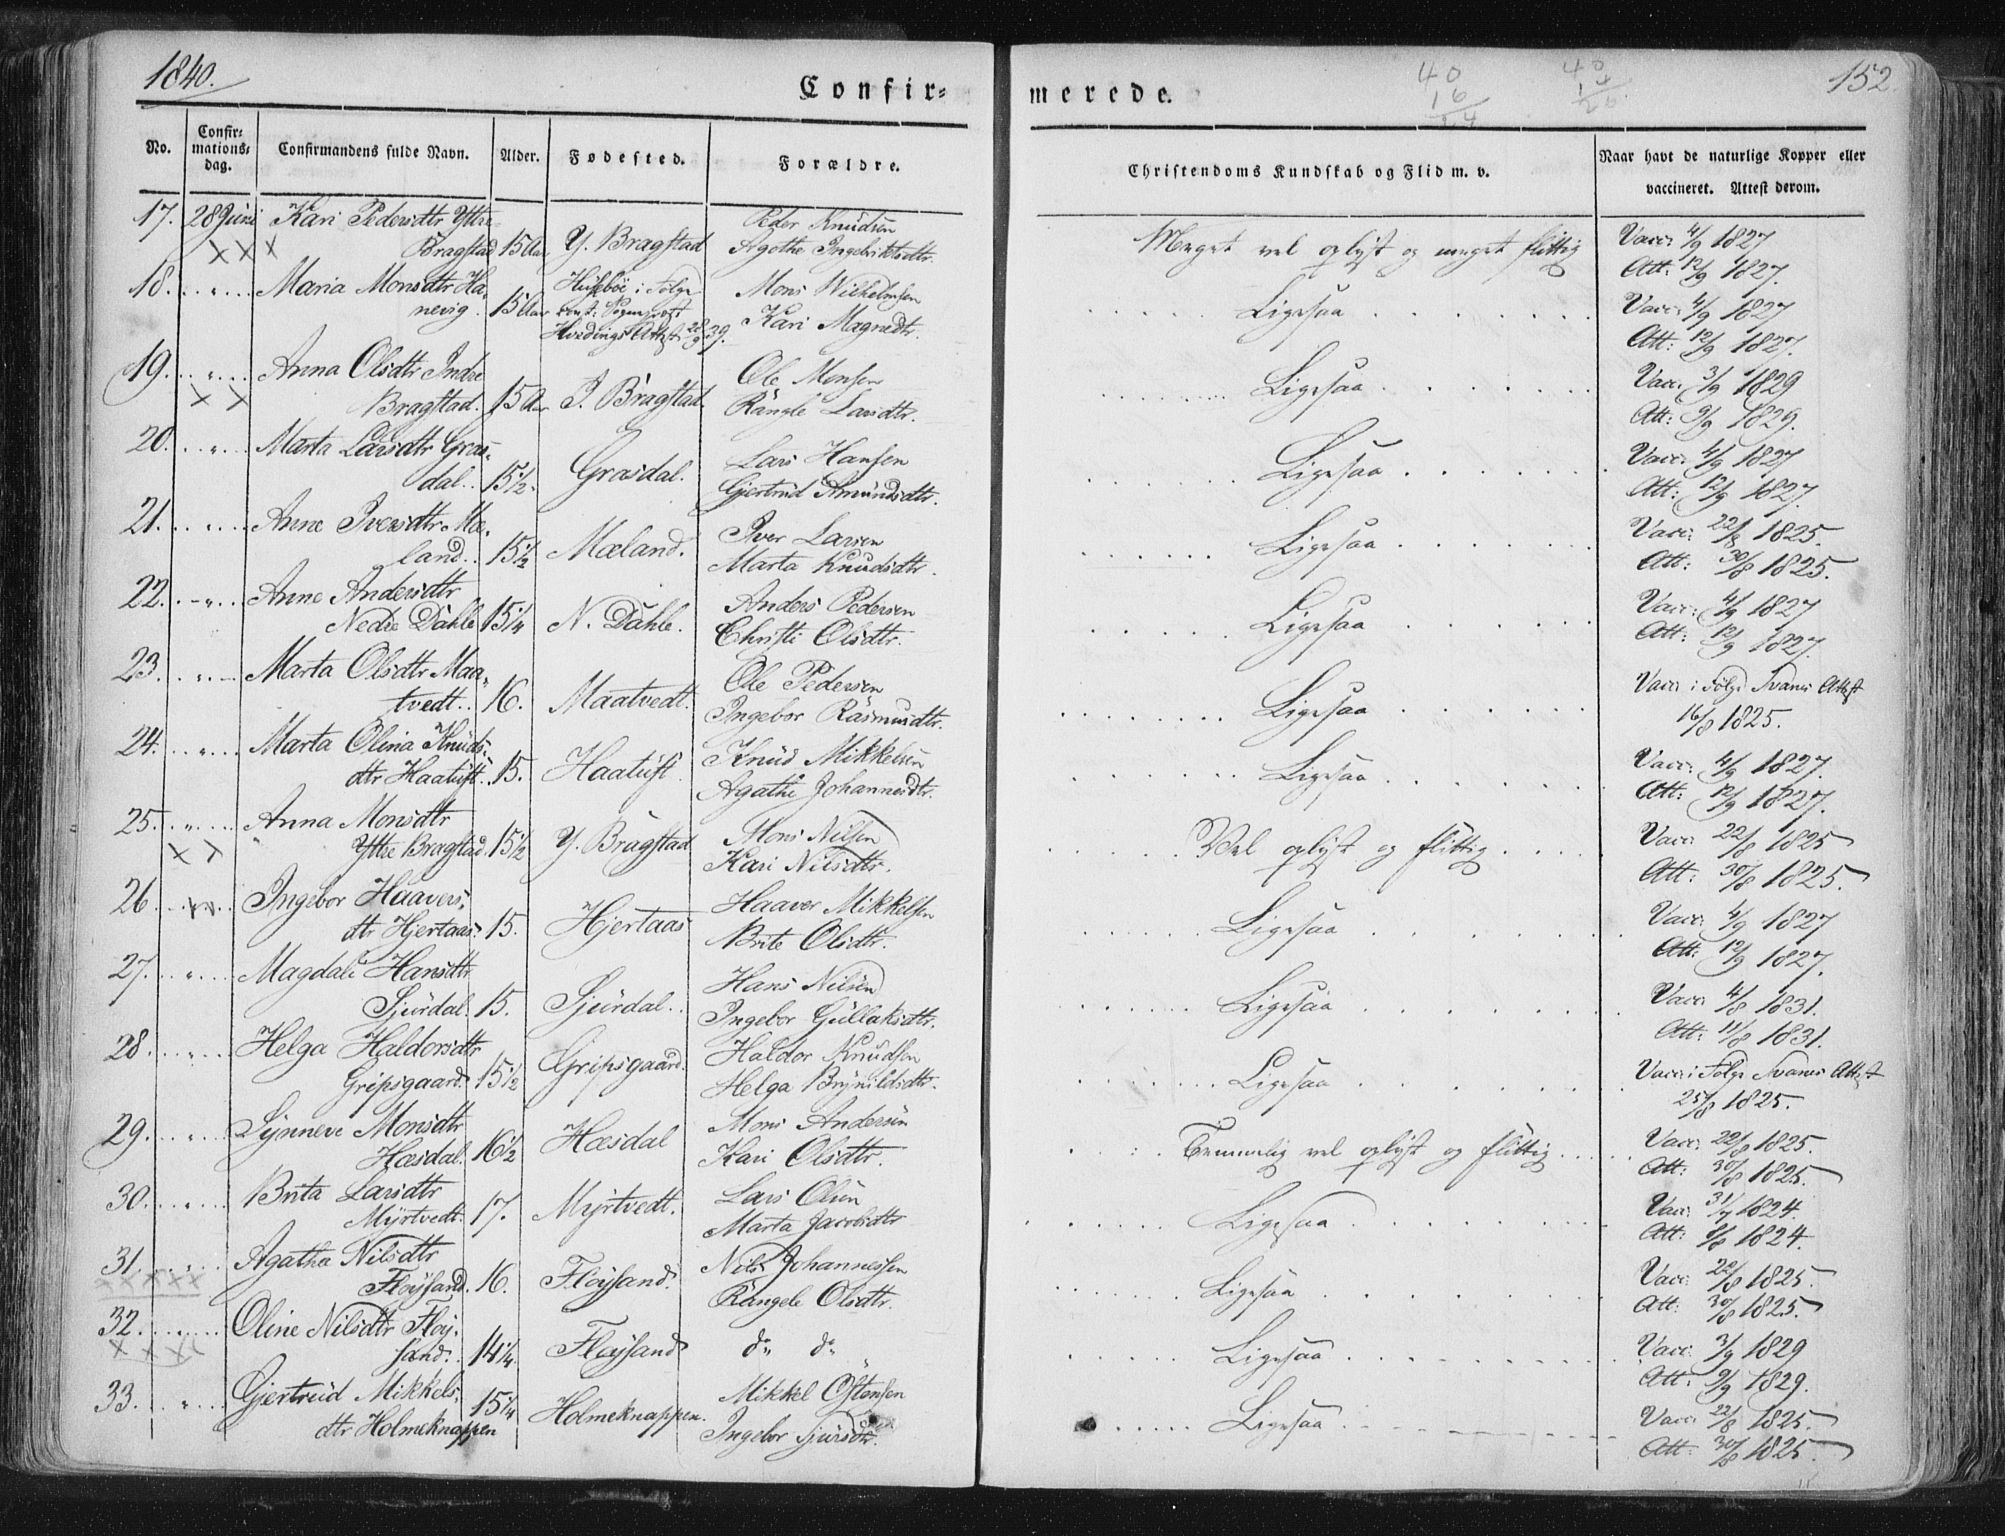 1840.
Confir=
merede.
40
16
24
152.
No.
Confir=
mations=
dag.
Confirmandens fulde Navn.
Alder.
Fødested.
Forældre.
Christendoms Kundskab og Flid m. v.
Naar havt de naturlige Kopper eller
vaccineret. Attest derom.
17. 28 Juni Kari Pedersdtr Yttre Peder Knudsen
Bragstad 15 Aar Y. Bragstad Agathe Ingebriktsdtr. Meget vel oplyst og meget flittig Vacc: 4/9 1827
× × × Att: 12/9 1827.
18. " Maria Monsdtr Ha= Husebøe i Følge Mons Wilhelmsen
nevig. 15 Aar const: Sogneprest Kari Magnedtr. Ligesaa Vacc: 4/9 1827
Hvedings Attest 28/9 39. Att: 12/9 1827.
19. " Anna Olsdtr Indre Ole Monsen Vacc: 3/9 1829
× × Bragstad. 15 Aar I. Bragstad. Rangle Larsdtr. Ligesaa Att: 9/9 1829.
20. " Marta Larsdtr Gras= Lars Hansen Vacc: 4/9 1827
dal. 15 1/2. Grasdal. Gjertrud Amundsdtr. Ligesaa Att: 12/9 1827.
21. " Anne Iversdtr Mæ= Iver Larsen Vacc: 22/8 1825.
land. 15 1/2 Mæland. Marta Knudsdtr. Ligesaa Att: 30/8 1825.
22. " Anne Andersdtr Anders Pedersen Vacc: 4/9 1827
Nedre Dahle 15 1/4 N. Dahle. Christi Olsdtr. Ligesaa Att: 12/9 1827.
23. " Marta Olsdtr Maa= Ole Pedersen Vacc i Følge Svanes Attest
tvedt. 16. Maatvedt. Ingebor Rasmusdtr. Ligesaa 16/8 1825.
24. " Marta Olina Knuds= Knud Mikkelsen Vacc: 4/9 1827.
dtr Haatuft. 15. Haatuft. Agathe Johannesdtr. Ligesaa Att: 12/9 1827.
25. " Anna Monsdtr Mons Nilsen Vacc: 22/8 1825
× × Yttre Bragstad. 15 1/2 Y. Bragstad Kari Nilsdtr. Vel oplyst og flittig Att: 30/8 1825.
26. " Ingebor Haavers= Haaver Mikkelsen Vacc: 4/9 1827
dtr Hjertaas. 15. Hjertaas Brite Olsdtr. Ligesaa Att: 12/9 1827.
27. " Magdali Hansdtr Hans Nilsen Vacc: 4/8 1831.
Sjurdal. 15. Sjurdal. Ingebor Gullaksdtr. Ligesaa Att: 11/8 1831.
28. " Helga Haldorsdtr Haldor Knudsen Vacc i Følge Svanes Attest
Gripsgaard. 15 1/2 Gripsgaard. Helga Brynildsdtr. Ligesaa 25/8 1825.
29. " Synneve Monsdtr Mons Andersen Vacc: 22/8 1825.
Hæsdal. 16 1/2 Hæsdal Kari Olsdtr. Temmelig vel oplyst og flittig Att: 30/8 1825.
30. " Brita Larsdtr Lars Olsen Vacc: 31/7 1824.
Myrtvedt. 17. Myrtvedt. Marta Jacobsdtr Ligesaa Att: 1824.
31. " Agatha Nilsdtr Nils Johannessen Vacc: 22/8 1825.
× × × × × Fløysand. 16. Fløysand Rangele Olsdtr. Ligesaa Att: 30/8 1825.
32. " Oline Nilsdtr Fløy= Vacc: 3/9 1829
× × × × sand. 14 1/4. Fløysand do do Ligesaa Att: 9/9 1829.
33. " Gjertrud Mikkels= Mikkel Østensen Vacc: 22/8 1825.
dtr Holmeknappen 15 1/4 Holmeknappen. Ingebor Sjursdtr. Ligesaa Att: 30/8 1825.